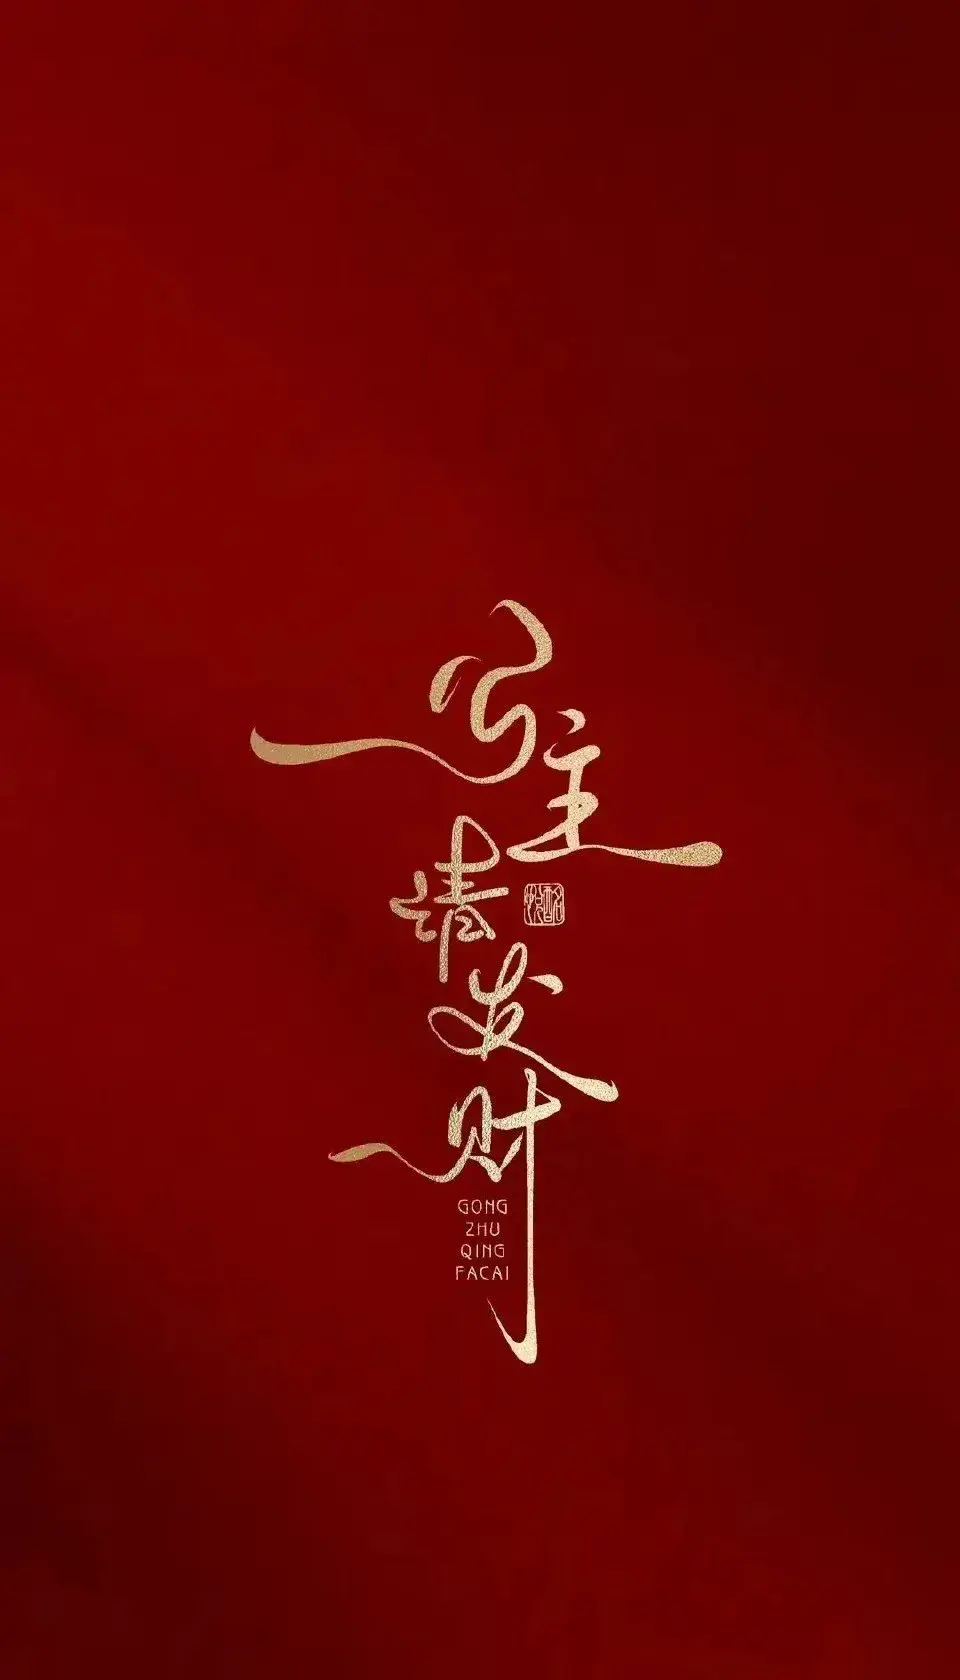 公主
请
发
财
GONG
ZHU
QING
FACAI